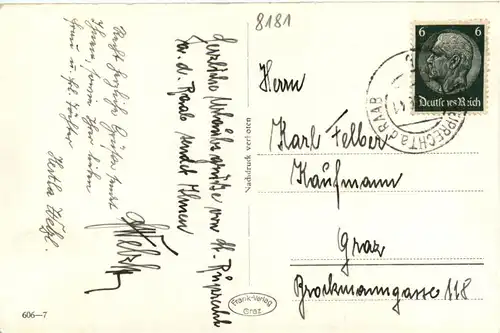 8181
6 6
Deutsches Reich
RUPRECHT a.d. RAAB
Herrn
Karl Felber
Kaufmann
Graz
Brockmanngasse 118
Nachdruck verboten
Herzliche Urlaubsgrüße von St. Ruprecht
a. d. Raab sendet Ihnen
Recht herzliche Grüße sendet
Ihnen, sowie Ihrer lieben
Frau u. Frl. Tochter
Hertha
606—7
Frank-Verlag
Graz